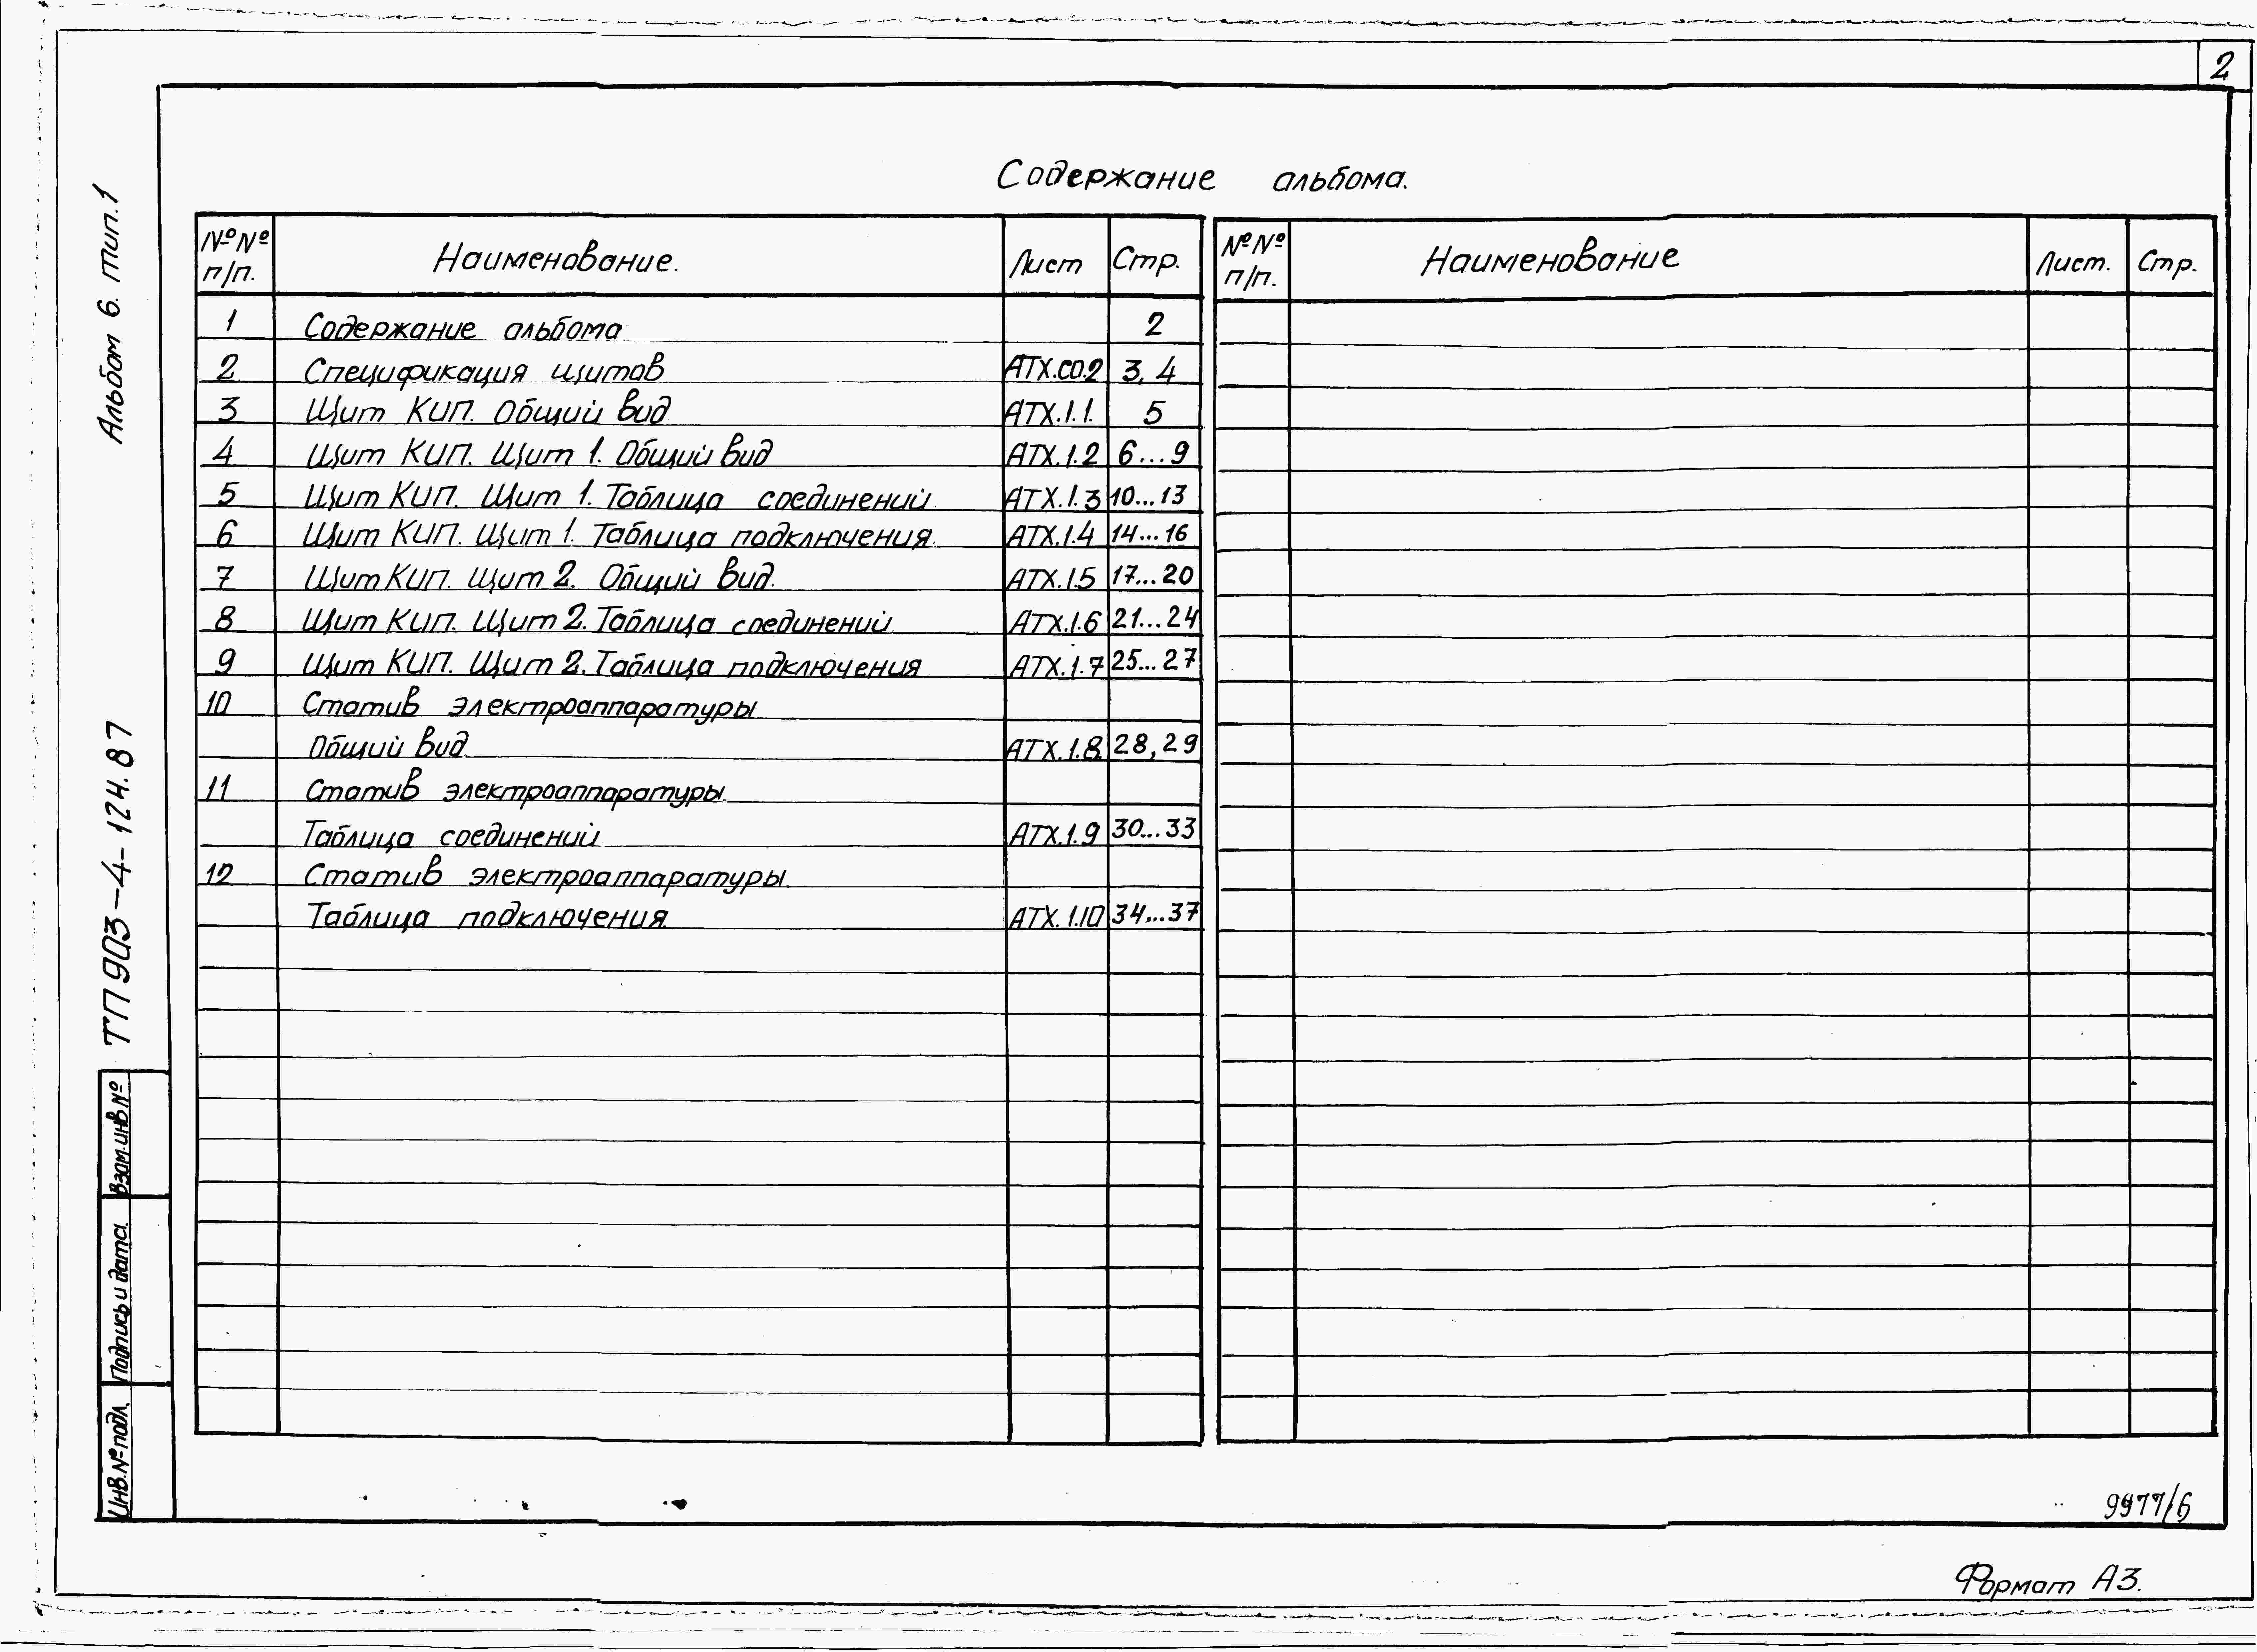 2
Содержание альбома.
№№ п/п. Наименование. Лист Стр.
1 Содержание альбома 2
2 Спецификация щитов АТХ.СО.2 3, 4
3 Щит КИП. Общий вид АТХ.1.1. 5
4 Щит КИП. Щит 1. Общий вид АТХ.1.2 6...9
5 Щит КИП. Щит 1. Таблица соединений АТХ.1.3 10...13
6 Щит КИП. Щит 1. Таблица подключения. АТХ.1.4 14...16
7 Щит КИП. Щит 2. Общий вид. АТХ.1.5 17...20
8 Щит КИП. Щит 2. Таблица соединений АТХ.1.6 21...24
9 Щит КИП. Щит 2. Таблица подключения АТХ.1.7 25...27
10 Статив электроаппаратуры
Общий вид. АТХ.1.8 28, 29
11 Статив электроаппаратуры.
Таблица соединений АТХ.1.9 30...33
12 Статив электроаппаратуры.
Таблица подключения. АТХ.1.10 34...37
№№ п/п. Наименование Лист. Стр.
Альбом 6. тип.1
ТП 903-4-124.87
Взам.инв №
Подпись и дата.
Инв.№ подл.
9977/6
Формат А3.